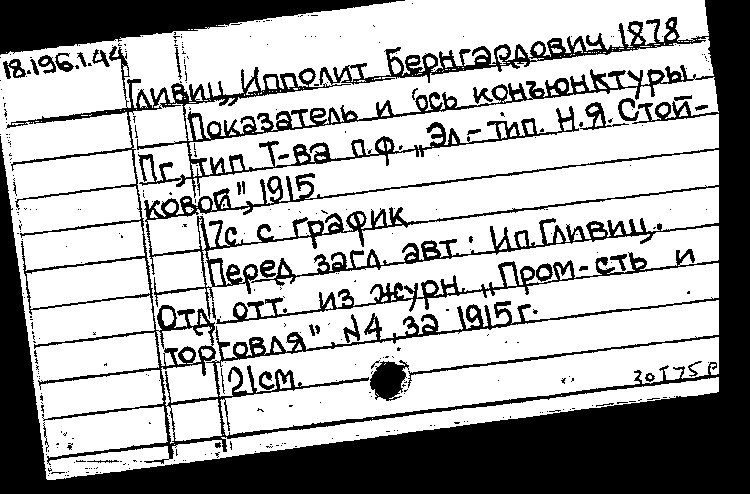 18.196.1.44
Гливиц, Ипполит Бернгардович, 1878
Показатель и ось конъюнктуры.
Пг., тип. Т-ва п.ф. „Эл.-тип. Н.Я. Стой-
ковой", 1915.
17с. с график
Перед загл. авт.: Ип. Гливиц.
Отд. отт. из журн. „Пром-сть и
торговля". N4, за 1915г.
21см.